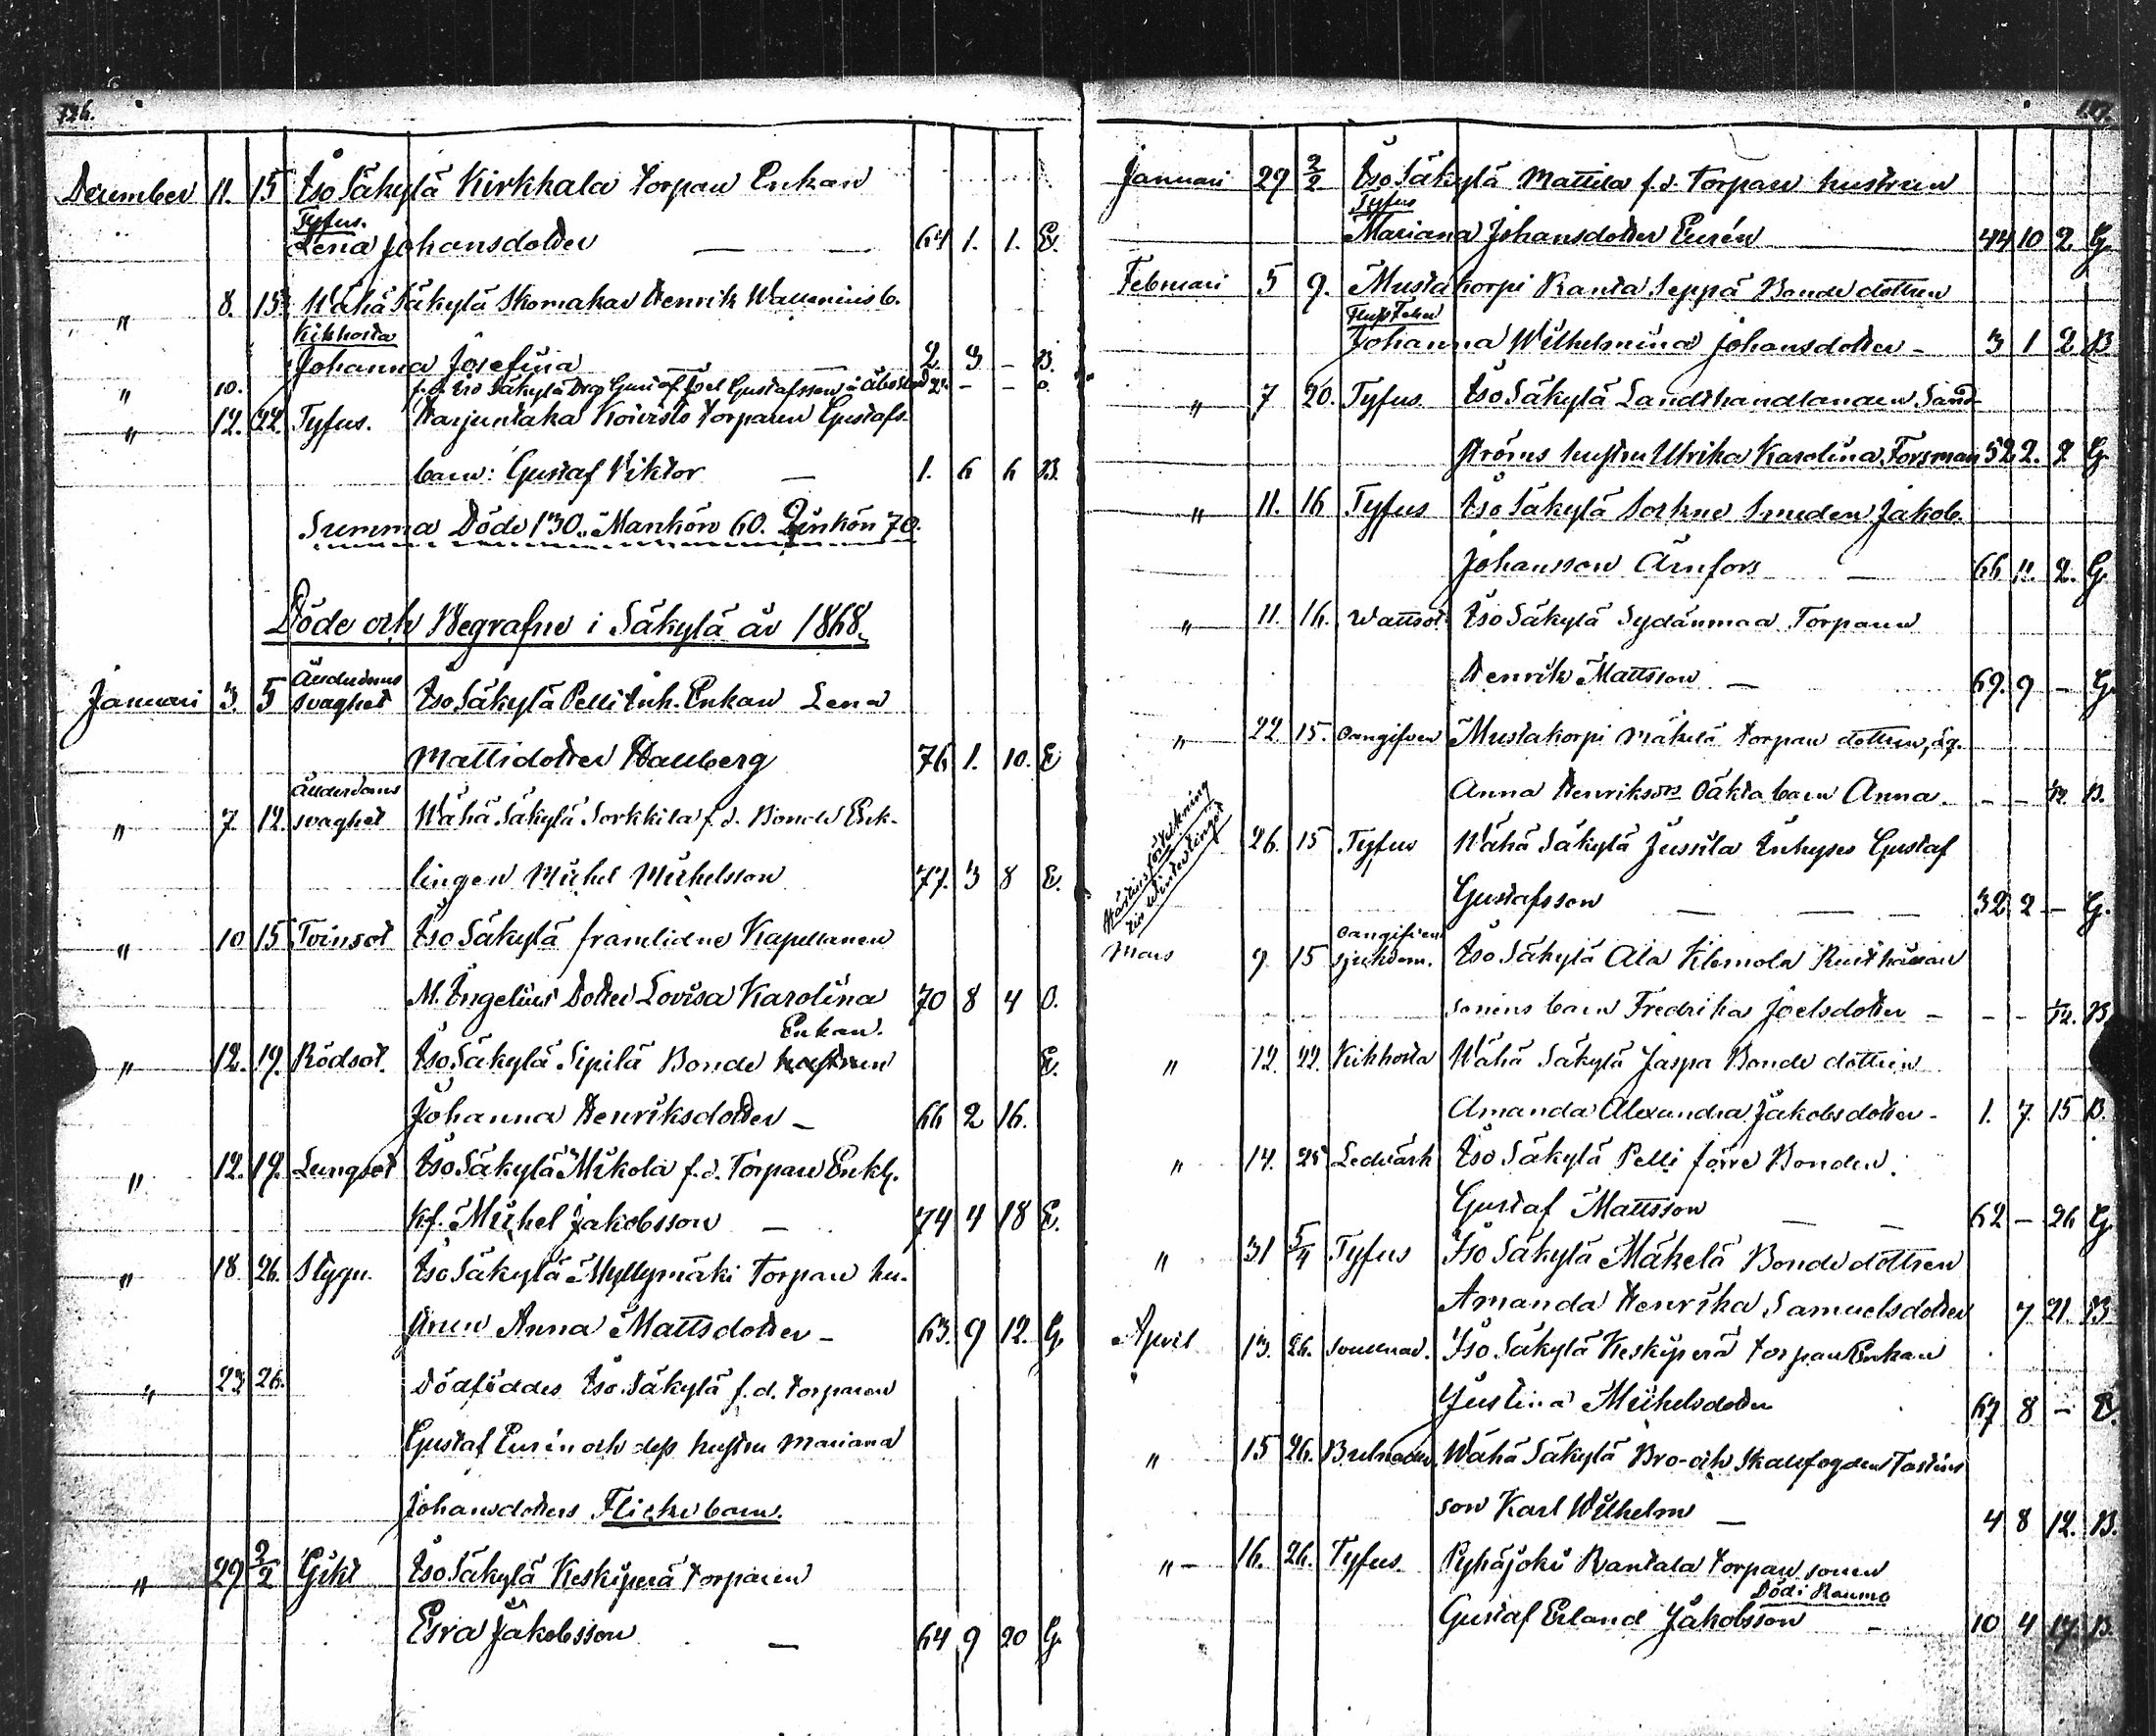 126.
December 11. 15 Iso Säkylä Kirkkala Torpare Enkan
Tyfus.
Lena Johansdotter — — 64 1. 1. E.
" 8. 15 Wähä Säkylä Skomakar Henrik Wallenius b.
Kikhosta
Johanna Josefina — — 2. 3 – B.
" 10. f.d. Iso Säkylä Gustafsson
" 12. 22. Tyfus. Karjuntaka Koivisto Torparen Gustafs
barn: Gustaf Viktor — 1. 6 6 B.
Summa Döde 130. Mankön 60. Qvinkön 70.
Döde och Begrafne i Säkylä år 1868.
Januari 3. 5 Ålderdoms
svaghet Iso Säkylä Pelli Inh. Enkan Lena
Mattsdotter Hallberg 76 1. 10. E
Ålderdoms
" 7. 12. svaghet Wähä Säkylä Sorkkila f.d. Bonde Enk-
lingen Mickel Mickelsson 77. 3 8 E.
" 10 15 Tvinsot Iso Säkylä framlidne Kapellanen
M. Ingelius Dotter Lovisa Karolina 70 8 4 O.
Enkan.
" 12. 19. Rödsot. Iso Säkylä Sipilä Bonde hustrun E.
Johanna Henriksdotter – 66 2 16.
" 12. 19. Lungsot Iso Säkylä Mikola f.d. Torpare Enkl.
Kf. Mickel Jakobsson — 74 4 18 E.
" 18. 26. Stygn. Iso Säkylä Myllymäki Torpare hu-
strun Anna Mattsdotter – 63. 9 12. G.
" 23 26. Dödföddes Iso Säkylä f.d. torparen
Gustaf Eurén och dess hustru Mariana
Johansdotters Flickebarn.
" 29 2/2 Gikt Iso Säkylä Keskiperä torparen
Esra Jakobsson — 64 9 20 G.
127.
Januari 29 2/2 Iso Säkylä Mattila f.d. Torpare hustrun
Tyfus
Mariana Johansdotter Eurén 44 10 2. G.
Februari 5 9. Mustakorpi Ranta Seppä Bonde dottren
Johanna Wilhelmina Johansdotter – 3 1 2 B
" 7 20. Tyfus. Iso Säkylä Landthandlanden Sand-
ströms hustru Ulrika Karolina Forsman 52 2. 2 G.
" 11. 16 Tyfus Iso Säkylä Sockne Smeden Jakob
Johansson Ärnfors — 66 11. 2. G.
" 11. 16. Wattsot Iso Säkylä Sydänmaa Torparen
Henrik Mattsson — 69. 9 – G.
" 22 15. oangifven Mustakorpi Mäkelä torpare dottren, äg.
Anna Henriksdrs oäkta barn Anna. – – 1/12. B.
till Wintertinget
26. 15 Tyfus Wähä Säkylä Jussila Inhyses Gustaf
Gustafsson — — — 32. 2 – G.
oangifven
Mars 9 15 sjukdom. Iso Säkylä Ala Klemola Rusthållare
sonens barn Fredrika Joelsdotter – – – 1/12. B.
" 12. 22. Kikhosta Wähä Säkylä Jaspa Bonde dottren
Amanda Alexandra Jakobsdotter – 1. 7. 15 B.
" 14. 25 Ledvärk Iso Säkylä Pelli förre Bonden
Gustaf Mattsson — — 62 – 26 G
" 31 5/4 Tyfus Iso Säkylä Mäkelä Bonde dottren
Amanda Henrika Samuelsdotter 7. 21. B.
April 13. 26. Iso Säkylä Keskiperä torpare Enkan
Justina Mickelsdotter 67 8 – E.
" 15 26. Wähä Säkylä Bro- och Skallfogdens
son Karl Wilhelm — 4 8 12. B.
" – 16. 26. Tyfus. Pyhäjoki Rantala torpare sonen
Död i Raumo
Gustaf Erland Jakobsson – 10 4 19. B.